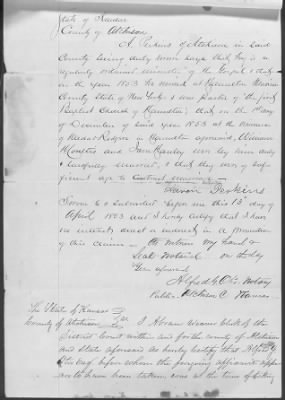 State of Kansas
County of Atchison
A. Perkins of Atchison in said
County being duly sworn says that he is a
regularly ordained minister of the Gospel & that
in the year 1853 he resided at Hamilton Madison
County State of New York & was pastor of the first
Baptist Church of Hamilton; that on the day
of December of said year 1853 at the
of in Hamilton aforesaid, William
and were by him duly
& lawfully married, & that they were of suf-
ficient age to Contract marriage
Aaron Perkins
Sworn to & subscribed before me this 13 day of
April 1863 and I hereby certify that I have
no interest direct or indirect in the prosecution
of this claim. In witness my hand &
Seal Notarial on the day
& year aforesaid
Alfred G. Otis, Notary
Public Atchison C. Kansas
The State of Kansas
County of Atchison } ss I Abram Weaver Clerk of the
District Court within and for the county of Atchison
and State aforesaid do hereby certify that Alfred G
Otis Esq. before whom the foregoing affidavit appear
to have been taken was at the time of taking